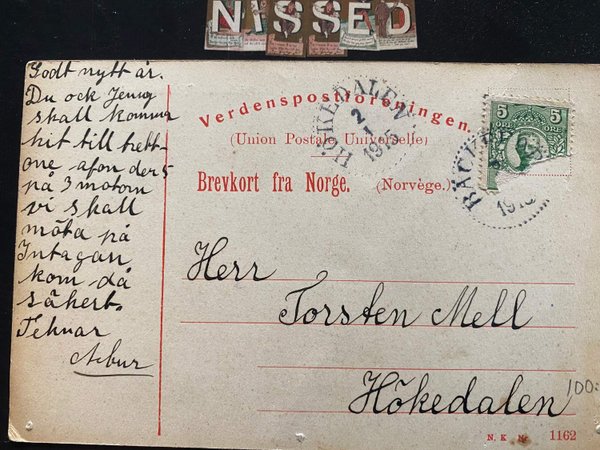 NISSED
Godt nytt år.
Du ock Jenny
skall komma
hit till trett-
one afon der 5
på 3 motorn
vi skall
möta på
Intagan
kom då
säkert.
HÖKEDALEN
2
1
1915
Verdenspostforeningen.
(Union Postale Universelle)
Brevkort fra Norge. (Norvège.)
5 5
ÖRE
BÄCKE
191
Herr
Torsten Mell
Hökedalen
100:
N. K. Nr. 1162